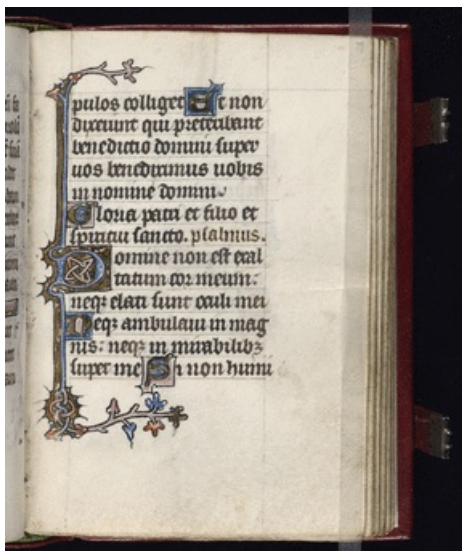 pulos colliget Et non
dixerunt qui preteribant
benedictio domini super
uos benediximus uobis
in nomine domini.
Gloria patri et filio et
spiritui sancto. psalmus.
Domine non est exal
tatum cor meum:
neqꝫ elati sunt oculi mei
Neqꝫ ambulaui in mag
nis: neqꝫ in mirabilibꝫ
super me Si non humi